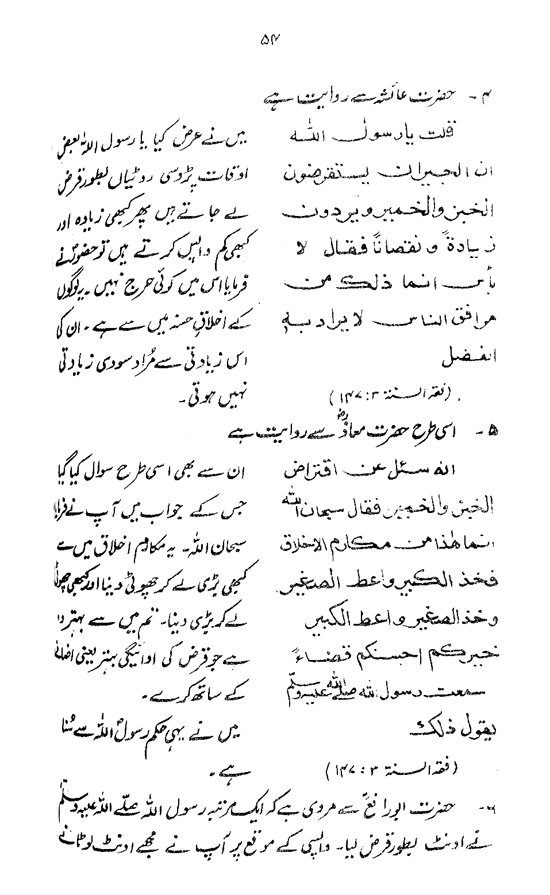 ۵۴
۴ - حضرت عائشہ سے روایت ہے
قلت یا رسول اللہ
ان الجیران یستقرضون
الخبز والخمیر ویردون
زیادۃً و نقصاناً فقال لا
بأس انما ذلک من
مرافق الناس لا یراد بہ
الفضل
(فقہ السنۃ ۳ : ۱۴۷)
میں نے عرض کیا یا رسول اللہ بعض
اوقات پڑوسی روٹیاں بطور قرض
لے جاتے ہیں پھر کبھی زیادہ اور
کبھی کم واپس کرتے ہیں تو حضورؐ نے
فرمایا اس میں کوئی حرج نہیں۔ یہ لوگوں
کے اخلاق حسنہ میں سے ہے۔ ان کی
اس زیادتی سے مُراد سودی زیادتی
نہیں ہوتی۔
۵ - اسی طرح حضرت معاذؓ سے روایت ہے
انہ سئل عن اقتراض
الخبز والخمیر فقال سبحان اللہ
انما ھٰذا من مکارم الاخلاق
فخذ الکبیر واعط الصغیر
وخذ الصغیر واعط الکبیر
خیرکم احسنکم قضاءً
سمعت رسول اللہ صلی اللہ علیہ وسلم
یقول ذلک
(فقہ السنۃ ۳ : ۱۴۷)
ان سے بھی اسی طرح سوال کیا گیا
جس کے جواب میں آپ نے فرمایا
سبحان اللہ۔ یہ مکارم اخلاق میں سے
کبھی بڑی لے کر چھوٹی دینا اور کبھی چھوٹی
لے کر بڑی دینا۔ تم میں سے بہتر وہ
ہے جو قرض کی ادائیگی بہتر یعنی اضافہ
کے ساتھ کرے۔
میں نے یہی حکم رسولؐ اللہ سے سُنا
ہے۔
۶ - حضرت ابو رافعؓ سے مروی ہے کہ ایک مرتبہ رسول اللہ صلی اللہ علیہ وسلم
نے اونٹ بطور قرض لیا۔ واپسی کے موقع پر آپ نے مجھے اونٹ لوٹانے